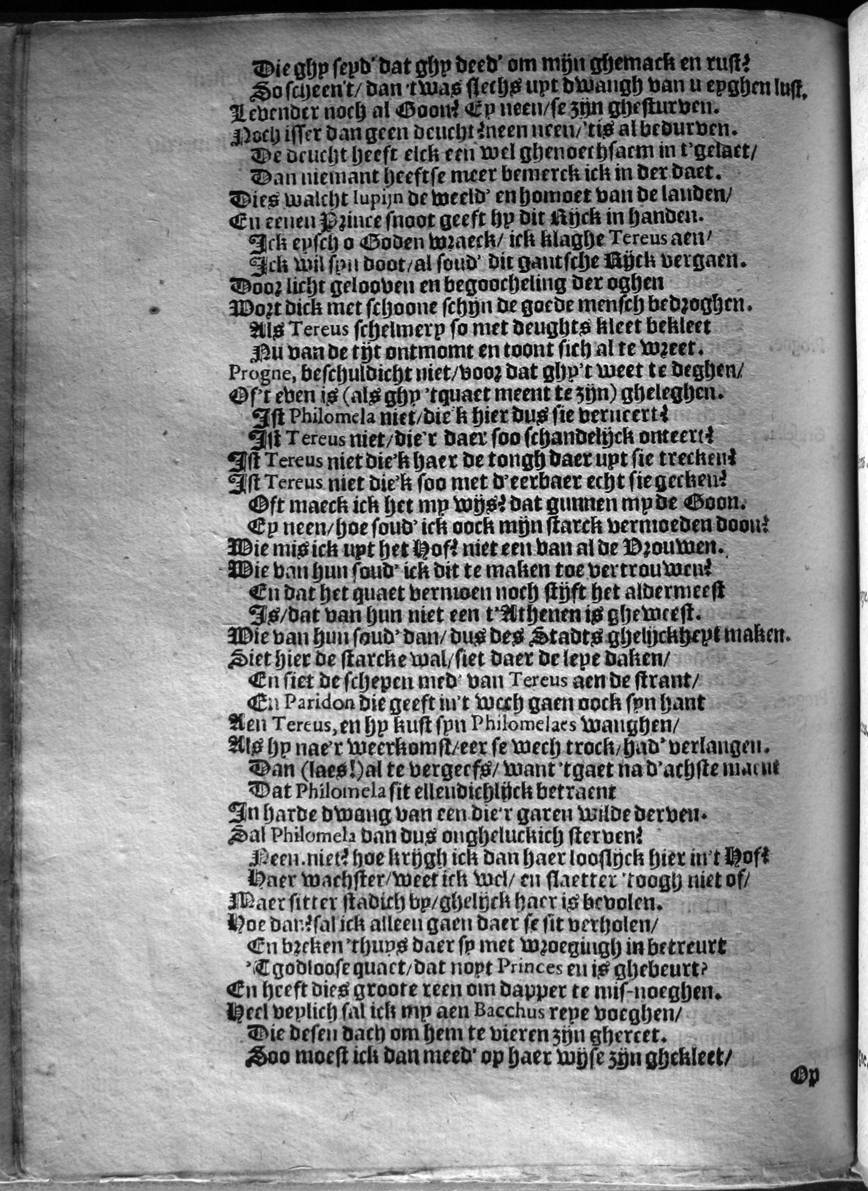 Die ghy seyd' dat ghy deed' om mijn ghemack en rust?
So scheen't/ dan 't was slechs uyt dwangh van u eyghen lust.
Levender noch al Goon? Ey neen/se zijn ghesturven.
Noch isser dan geen deucht? neen neen/'tis al bedurven.
De deucht heeft elck een wel ghenoechsaem in t'gelaet/
Dan niemant heeftse meer bemerck ick in der daet.
Dies walcht Iupijn de weeld' en homoet van de landen/
En eenen Prince snoot geeft hy dit Rijck in handen.
Ick eysch o Goden wraeck/ ick klaghe Tereus aen/
Ick wil syn doot/al soud' dit gantsche Rijck vergaen.
Door licht gelooven en begoocheling der oghen
Wort dick met schoone schijn de goede mensch bedroghen.
Als Tereus schelmery so met deughts kleet bekleet
Nu van de tijt ontmomt en toont sich al te wreet.
Progne, beschuldicht niet/voor dat ghy't weet te deghen/
Of't even is (als ghy 'tquaet meent te zijn) gheleghen.
Ist Philomela niet/die'k hier dus sie verneert?
Ist Tereus niet/die'r daer soo schandelijck onteert?
Ist Tereus niet die'k haer de tongh daer uyt sie trecken?
Ist Tereus niet die'k soo met d'eerbaer echt sie gecken?
Oft maeck ick het my wijs? dat gunnen my de Goon.
Ey neen/hoe soud' ick oock mijn starck vermoeden doon?
Wie mis ick uyt het Hof? niet een van al de Vrouwen.
Wie van hun soud' ick dit te maken toe vertrouwen?
En dat het quaet vermoen noch stijft het aldermeest
Is/dat van hun niet een t'Athenen is gheweest.
Wie van hun soud' dan/dus des Stadts ghelijckheyt maken.
Siet hier de starcke wal/siet daer de leye daken/
En siet de schepen med' van Tereus aen de strant/
En Paridon die geeft in't wech gaen oock syn hant
Aen Tereus, en hy kust syn Philomelaes wanghen/
Als hy nae'r weerkomst/eer se wech trock/had' verlangen.
Dan (laes!) al te vergeefs/ want 'tgaet na d'achste maent
Dat Philomela sit ellendichlijck betraent
In harde dwang van een die'r garen wilde derven.
Sal Philomela dan dus ongheluckich sterven?
Neen niet? hoe krijgh ick dan haer looslijck hier in't Hof?
Haer wachster/weet ick wel/ en slaetter 'toogh niet of/
Maer sitter stadich by/ghelijck haer is bevolen.
Hoe dan? sal ick alleen gaen daer se sit verholen/
En breken 'thuys daer sy met wroegingh in betreurt
'Tgodloose quaet/dat noyt Princes en is ghebeurt?
En heeft dies groote reen om dapper te mis-noeghen.
Heel veylich sal ick my aen Bacchus reye voeghen/
Die desen dach om hem te vieren zijn ghereet.
Soo moest ick dan meed' op haer wijse zijn ghekleet/
Op